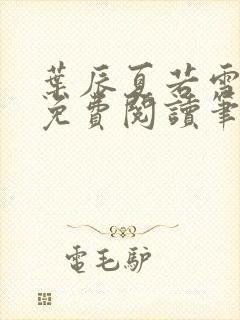 葉辰夏若雪
免費閱讀筆
電毛驴